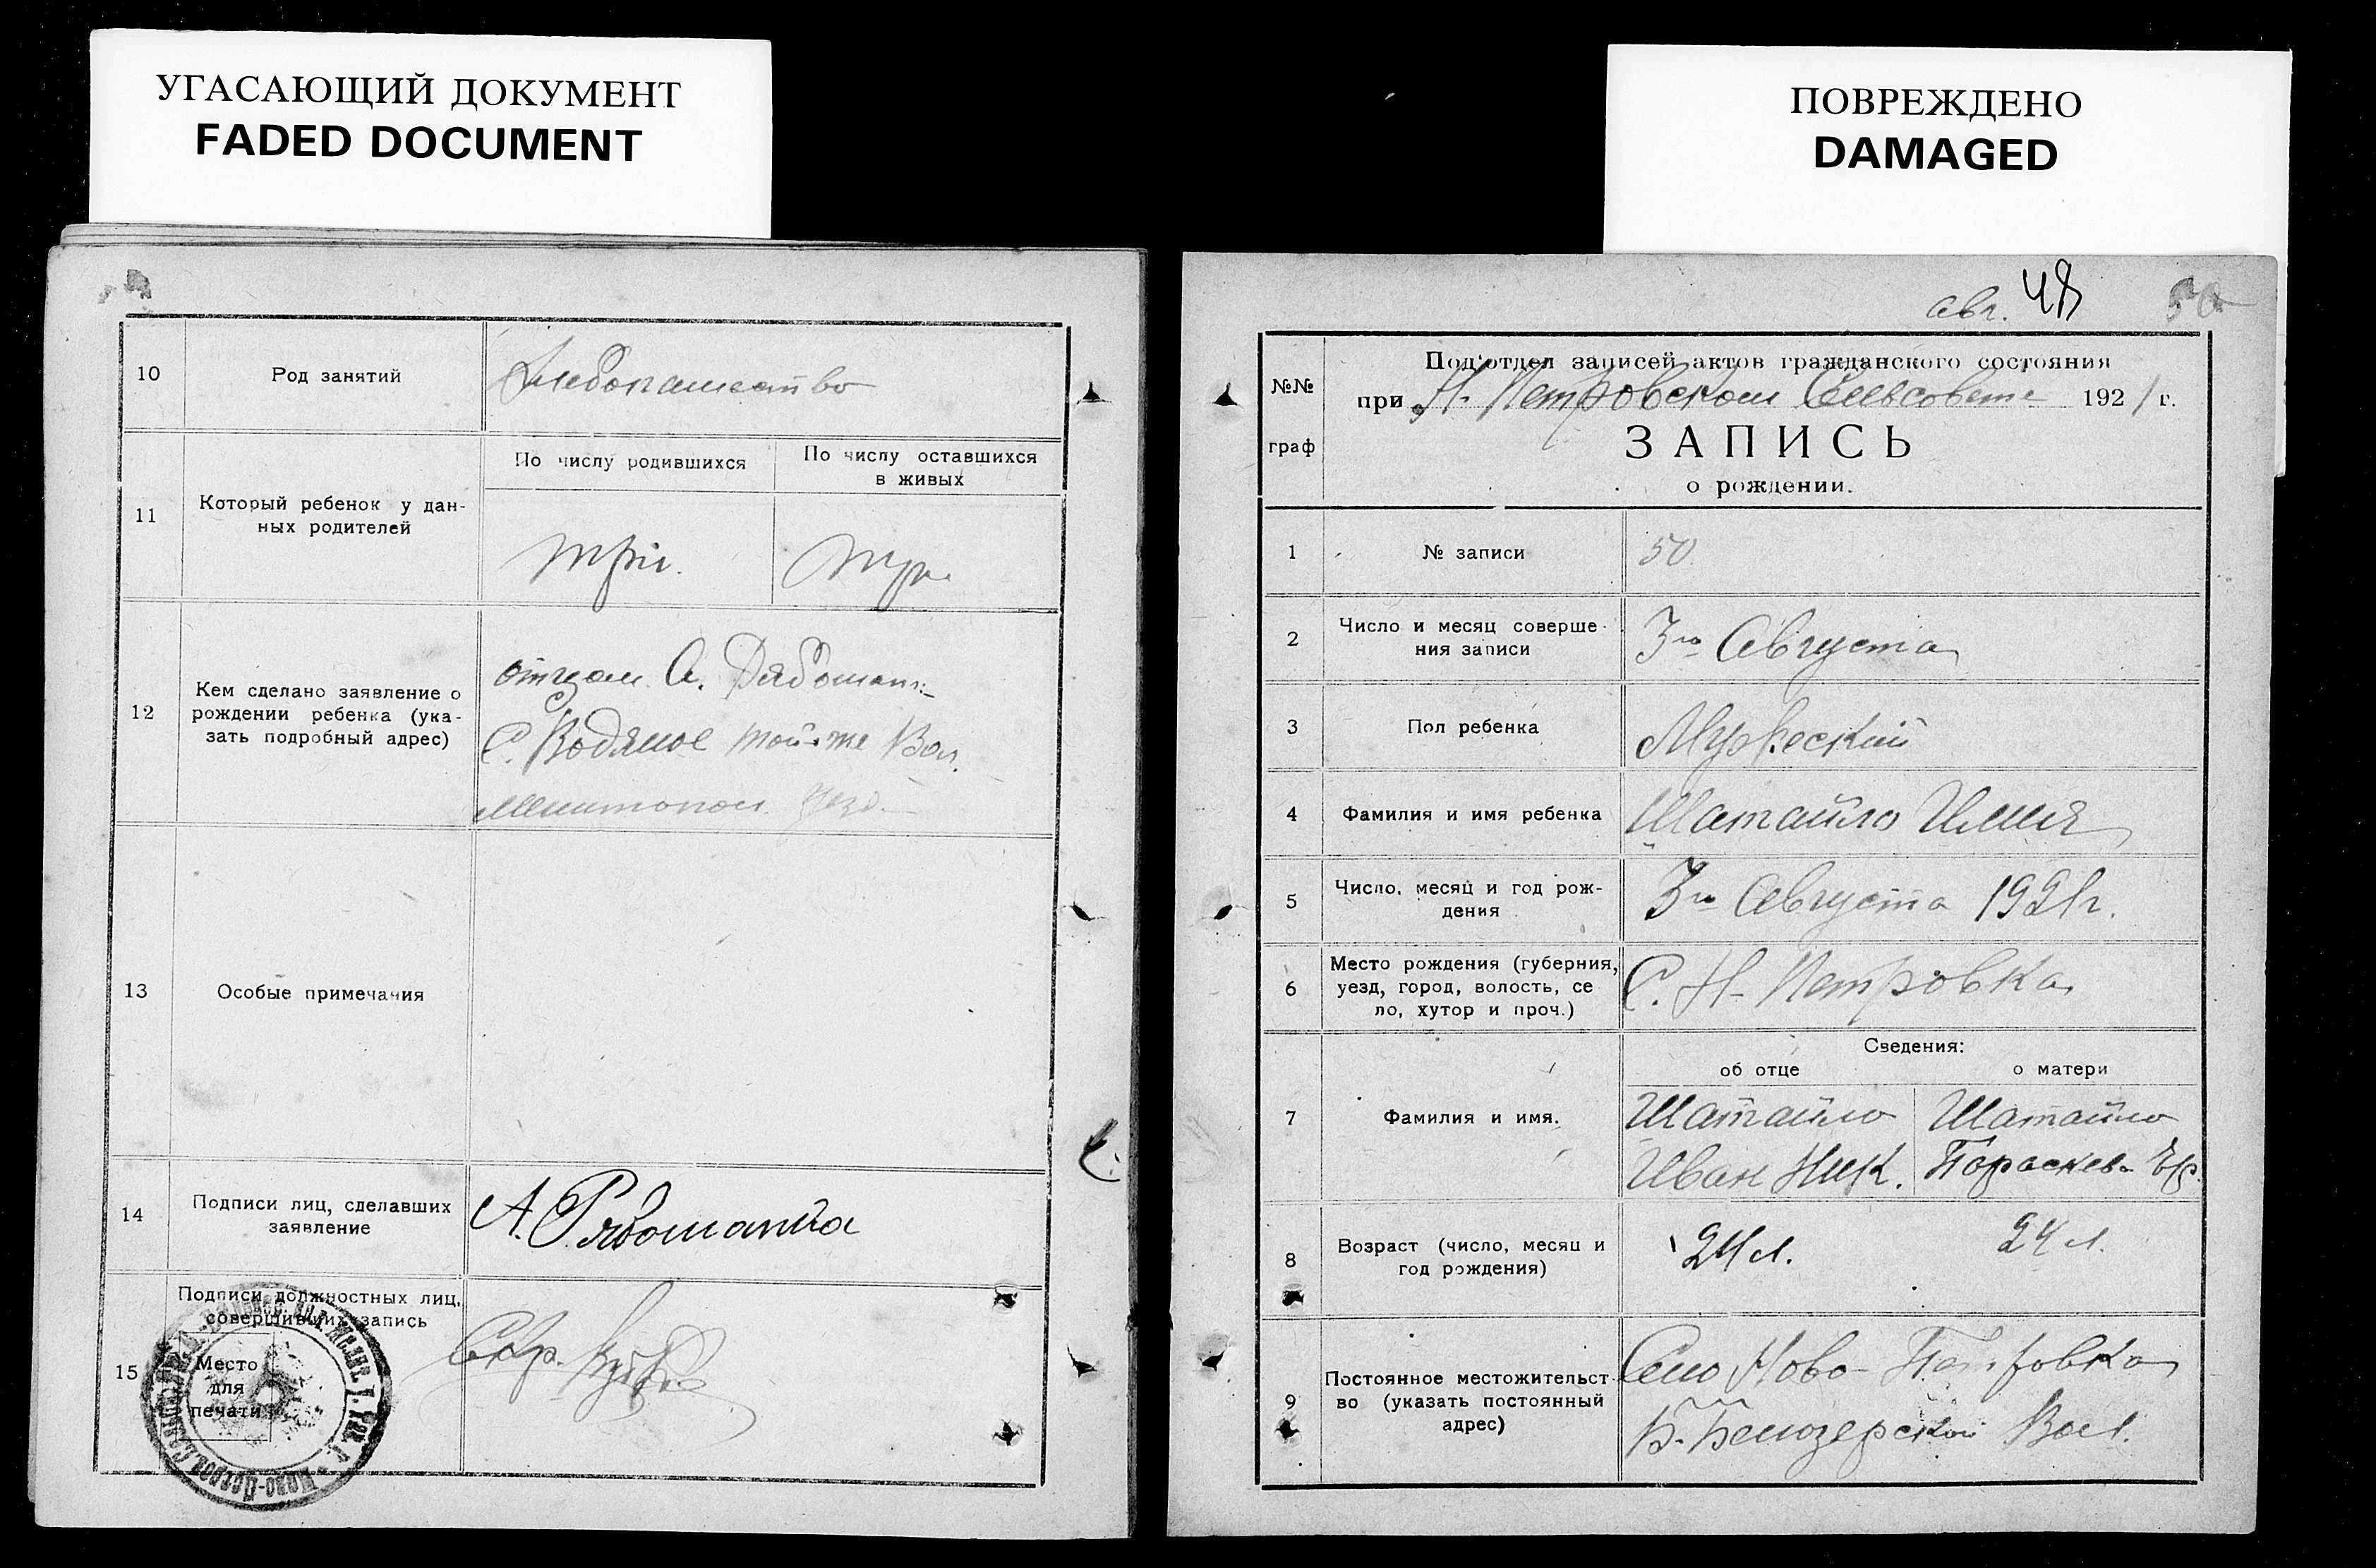 УГАСАЮЩИЙ ДОКУМЕНТ
FADED DOCUMENT
10
Род занятий
Хлебопашество
11
Который ребенок у дан-
ных родителей
По числу родившихся
По числу оставшихся
в живых
три.
три
12
Кем сделано заявление о
рождении ребенка (ука-
зать подробный адрес)
отцом А.
С. Водяное той-же Вол.
Мелитопол. уезд.
13
Особые примечания
14
Подписи лиц, сделавших
заявление
А. Рябошапка
15
Подписи должностных лиц,
совершивших запись
Место
для
печати
Скр.
ПОВРЕЖДЕНО
DAMAGED
авг. 48
50
№№
граф
Под'отдел записей актов гражданского состояния
при Н-Петровском Сельсовете 1921 г.
ЗАПИСЬ
о рождении.
1
№ записи
50
2
Число и месяц соверше-
ния записи
3го Августа
3
Пол ребенка
Мужеский
4
Фамилия и имя ребенка
Шатайло Илия
5
Число, месяц и год рож-
дения
3го Августа 1921г.
6
Место рождения (губерния,
уезд, город, волость, се
ло, хутор и проч.)
С. Н-Петровка
Сведения:
об отце
о матери
7
Фамилия и имя.
Шатайло
Иван Ник.
Шатайло
Параскева Еф.
8
Возраст (число, месяц и
год рождения)
24 л.
24 л.
9
Постоянное местожительст-
во (указать постоянный
адрес)
Село Ново-Петровка
Б-Белозерской Вол.